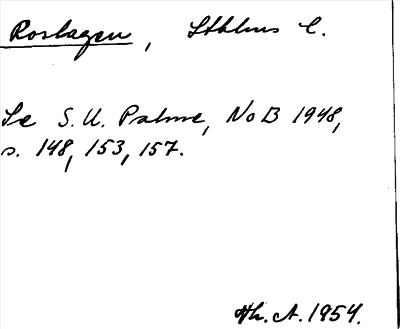 Roslagen, Sthlms l.
Se S. U. Palme, NoB 1948,
s. 148, 153, 157.
Hh. A. 1954.